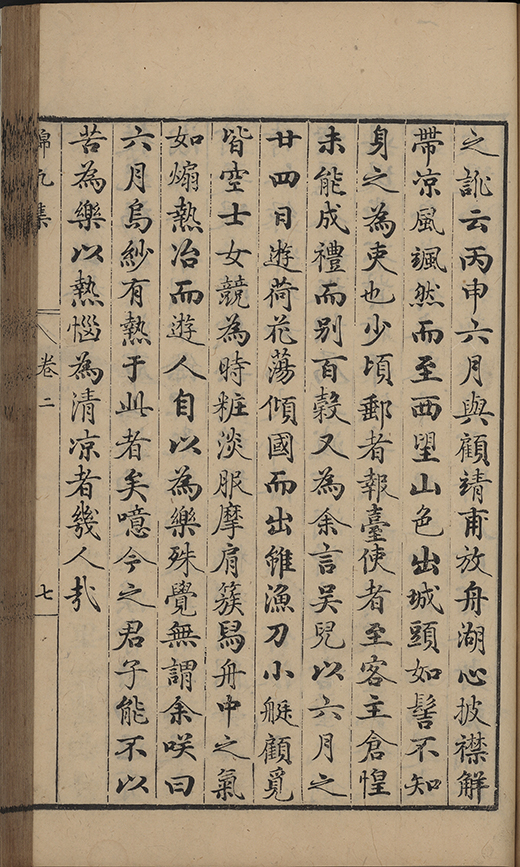 之訛云丙申六月與顧靖甫放舟湖心披襟解
帶凉風颯然而至西望山色出城頭如髻不知
身之為吏也少頃郵者報臺使者至客主倉惶
未能成禮而别百穀又為余言吳兒以六月之
廿四日遊荷花蕩傾國而出雖漁刀小艇顧覓
皆空士女競為時粧淡服摩肩簇舄舟中之氣
如煽熱冶而遊人自以為樂殊覺無謂余咲曰
六月烏紗有熱于此者矣噫今之君子能不以
苦為樂以熱惱為清凉者幾人㢤
錦凡集
卷二
七